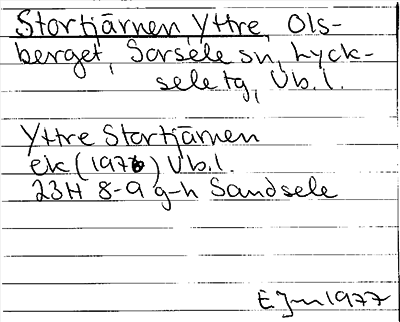 Stortjärnen, Yttre, Ols-
berget, Sorsele sn, Lyck-
sele tg, Vb.l.
Yttre Stortjärnen
ek (1976) Vb.l.
23H 8-9 g-h Sandsele
EJm 1977